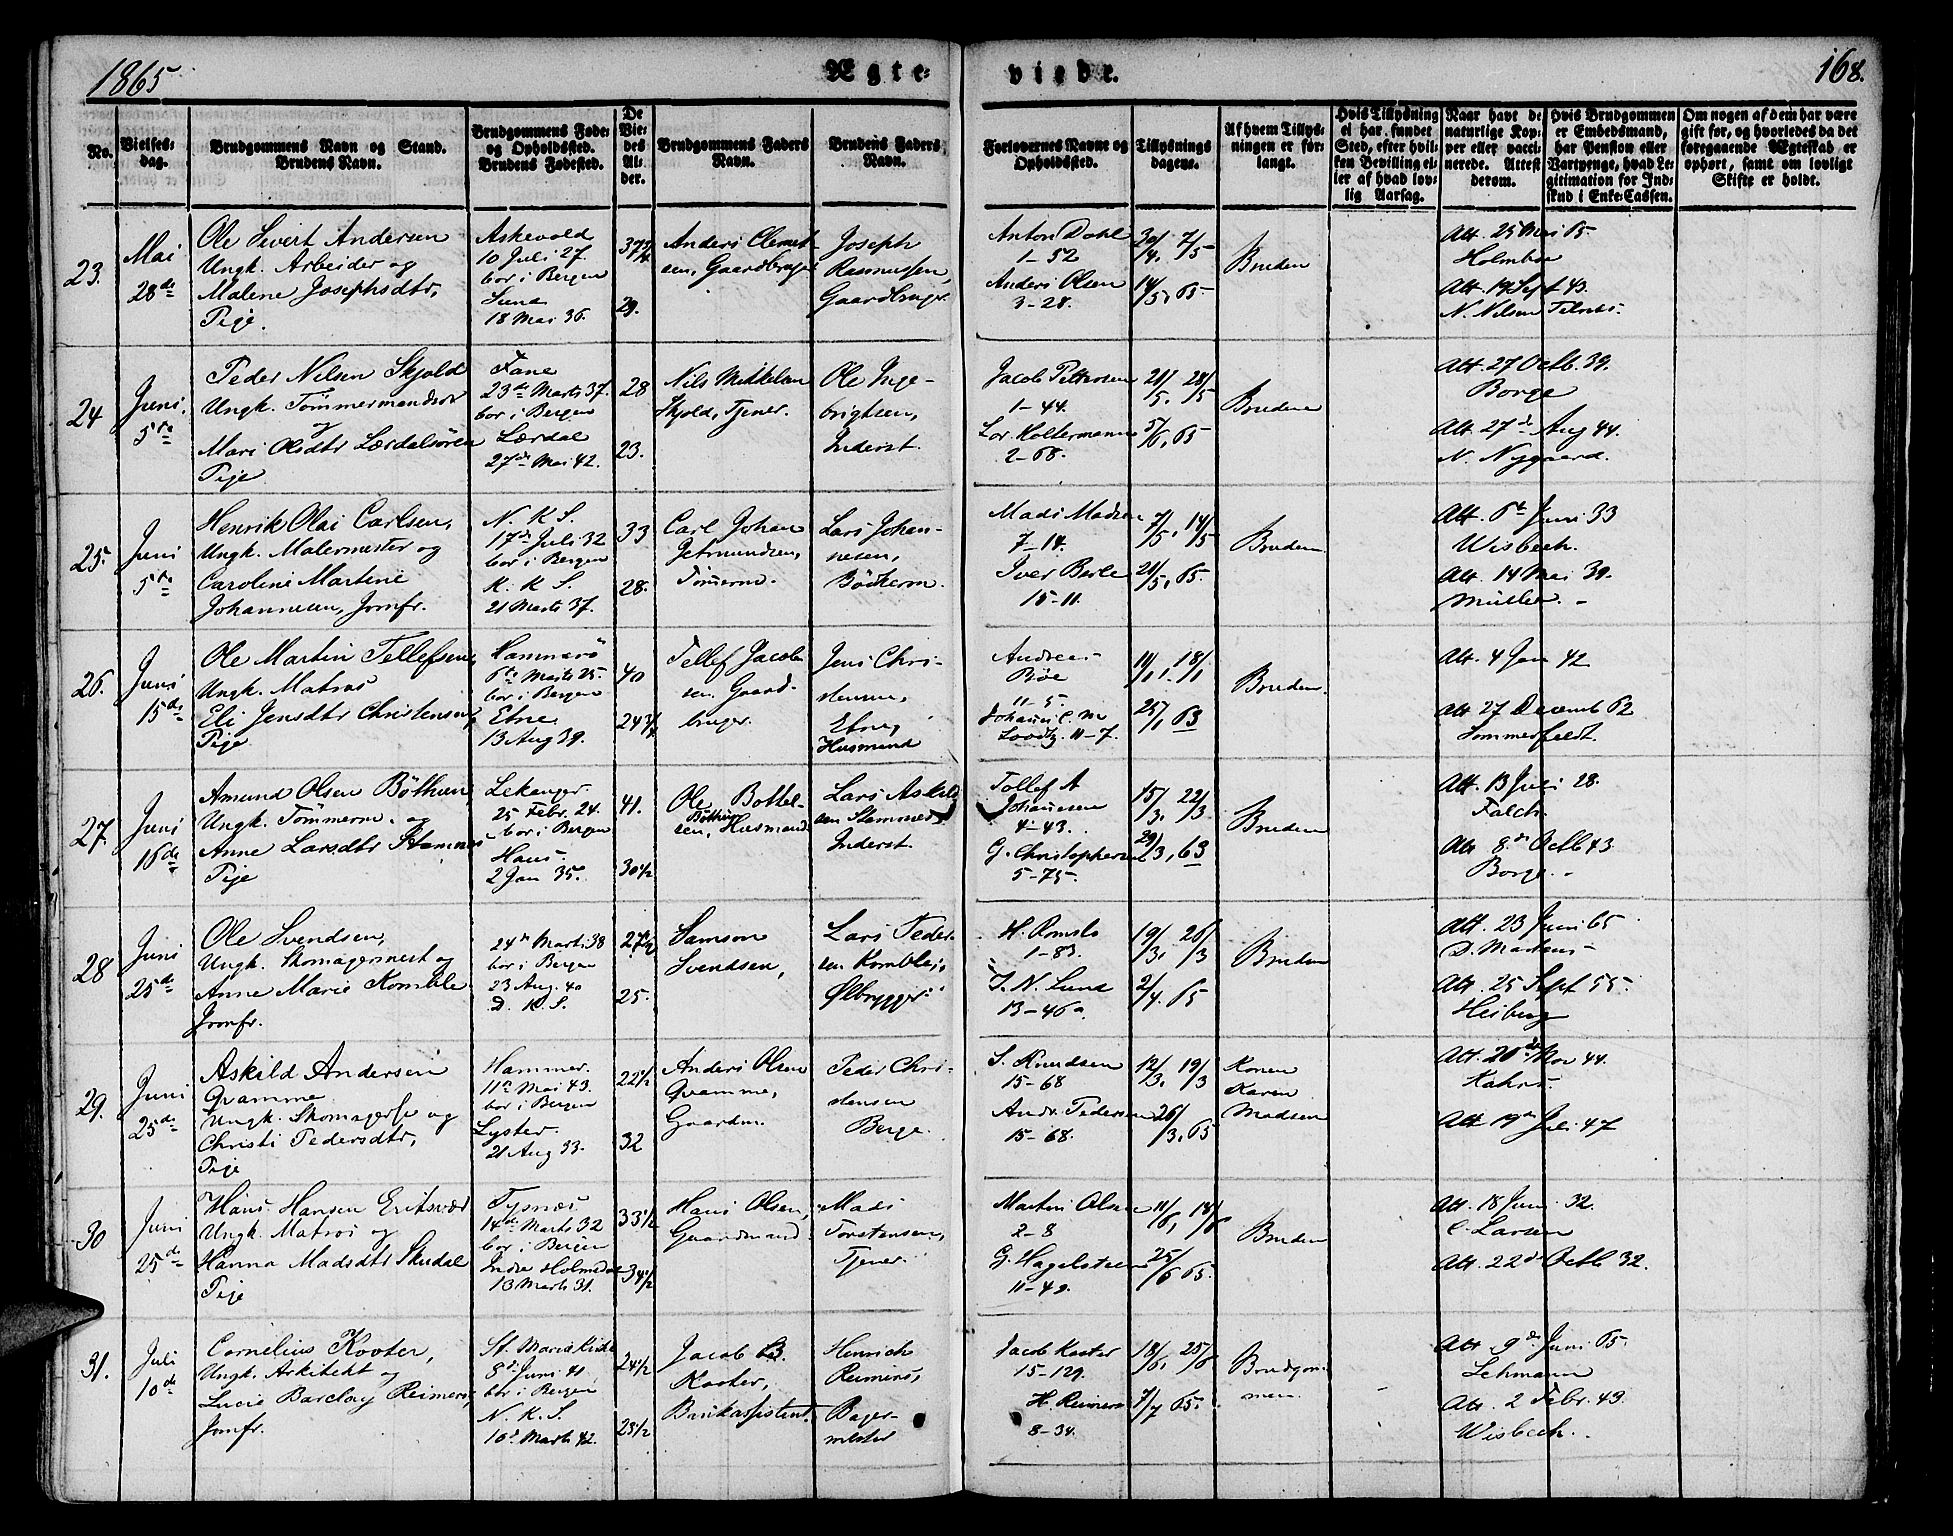 1865
Ægte-
viede.
168.
No.
Vielses-
dag.
Brudgommens Navn og Stand.
Brudens Navn.
Brudgommens Føde-
og Opholdssted.
Brudens Fødested.
De
Vie-
des
Al-
der.
Brudgommens Faders
Navn.
Brudens Faders
Navn.
Forlovernes Navne og
Opholdssted.
Tillysnings
dagene.
Af hvem Tillys-
ningen er for-
langt.
Hvis Tillysning
ei har fundet
Sted, efter hvil-
ken Bevilling el-
ler af hvad lov-
lig Aarsag.
Naar havt de
naturlige Kop-
per eller vacci-
nerede. Attest
derom.
Hvis Brudgommen
er Embedsmand,
har Pension eller
Vartpenge, hvad Le-
gitimation for Ind-
skud i Enke-Cassen.
Om nogen af dem har være
gift før, og hvorledes da det
foregaaende Ægteskab er
ophørt, samt om lovligt
Skifte er holdt.
23.
Mai
28de
Ole Sivert Andersen
Ungk. Arbeider og
Malene Josephsdtr,
Pige.
Askevold
10 Juli 27.
bor i Bergen
Sund
18 Mai 36.
29.
Anders Clemet-
sen, Gaardbruger
Joseph
Rasmussen,
Gaardbruger
Anton Dahl
1-52
Anders Olsen
3-28.
30/4. 7/5
14/5, 65.
Bruden
Att. 25 Mai 65.
Holmboe
Att. 19 Sept 43.
N. Nilsen
24
Juni
5te
Peder Nilsen Skjold
Ungk. Tømmermandsv
og
Mari Olsdtr Lærdalsøren
Pige
Fane
23de Marts 37.
bor i Bergen
Lærdal
27de Mai 42.
28
23.
Nils Mikkelsen
Skjold, Tjener.
Ole Inge-
brigtsen,
Inderst.
Jacob Pettersen
1-44.
Lor. Koltermann
2-68.
21/5. 28/5
5/6, 65
Bruden
Att. 27 Octb. 39.
Borge
Att. 27de Aug 44.
N. Nygaard.
25.
Juni
5te
Henrik Olai Carlsen,
Ungk. Malermester og
Caroline Martine
Johannesen, Jomfr.
N. K. S.
17de Juli 32
bor i Bergen
K. K. S.
21 Marts 37.
33
28.
Carl Johan
Tømerm.
Lars Johan-
nesen,
Bødkerm.
Mads Madsen
7-14.
Iver Berle
15-11.
7/5, 14/5
21/5, 65.
Bruden
Att. 6te Juni 33
Wisbech.
Att. 14 Mai 39.
Müller.
26.
Juni
15de
Ole Martin Tellefsen
Ungk. Matros
Eli Jensdtr Christensen
Pige
Hammerø
6te Marts 25.
bor i Bergen
Etne
13 Aug 39.
40
Tellef Jacob-
sen. Gaard-
bruger.
Jens Chri-
stensen,
Etne,
Husmand
Andreas
Bøe
11-5.
11-7.
11/1. 18/1
25/1 63
Bruden.
Att. 4 Jan 42
Att. 27 Decemb 62
Sommerfeldt.
27.
Juni
16de
Amund Olsen Bøthun,
Ungk. Tømmerm. og
Anne Larsdtr Stamnes
Pige
Lekanger.
25 Febr. 24.
bor i Bergen
Haus.
2 Jan 35.
41.
30 1/2
Ole Bottel-
Bøthun
sen, Husmand
Lars Askild-
sen Stamnes
Inderst.
Tollef A
Johannesen
4-43.
G. Christophersen
5-75.
15/3. 22/3.
29/3, 63
Bruden
Att. 13 Juli 28.
Falch.
Att 8de Octb 43
Borge.
28
Juni
25de
Ole Svendsen,
Ungk. Skomagermest og
Anne Marie Komble
Jomfr.
24de Marts 38
bor i Bergen
23 Aug. 40
D. K. S.
27 1/2
25.
Samson
Svendsen,
Lars Peder-
sen Komble,
Ølbrygger.
H. Romslo
1-83.
J. N. Lund
13-46a
19/3. 26/3
2/4. 65
Bruden
Att. 23 Juni 65
D. Martens
Att. 25 Sept 55.
Heiberg
29.
Juni
25de
Askild Andersen
Qvamme
Ungk. Skomagersv og
Christi Pedersdtr,
Pige
Hammer.
11te Mai 43.
bor i Bergen
Lyster.
21 Aug 33.
22 1/2
32
Anders Olsen
Qvamme,
Gaardm.
Peder Chri-
stensen
Berge.
S. Knudsen
15-68
Andr. Pedersen
15-68.
12/3. 19/3
26/3. 65
Konen
Karen
Madsen
Att. 20de Nov 44.
Kahrs.
Att 19de Juli 47
30
Juni
25de
Hans Hansen Eritsvær
Ungk. Matros og
Hanna Madsdtr Skudal
Pige
Tysnæs
14de Marts 32
bor i Bergen
Indre Holmedal
13 Marts 31.
33 1/2
34 1/2
Hans Olsen,
Gaardmand
Mads
Torstensen,
Tjener.
Martin Olsen
2-8
G. Hagelsteen
11-49.
11/6, 18/6
25/6 65.
Bruden
Att. 18 Juni 32.
C. Larsen
Att. 22de Octb 32.
31.
Juli
10de
Cornelius Koster,
Ungk. Arkitekt og
Lucie Barclay Reimers,
Jomfr.
St. Mariæ Kirke
8de Juni 41,
bor i Bergen
N. K. S.
16de Marts 42.
24 1/2
23 1/2
Jacob B.
Koster,
Bankassistent.
Henrich
Reimers,
Bager-
mester
Jacob Koster
15-129.
H. Reimers
8-34.
18/6, 25/6
7/7 65.
Brudgom-
men.
Att. 9de Juni 65.
Lehmann
Att. 2 Febr. 43.
Wisbech.